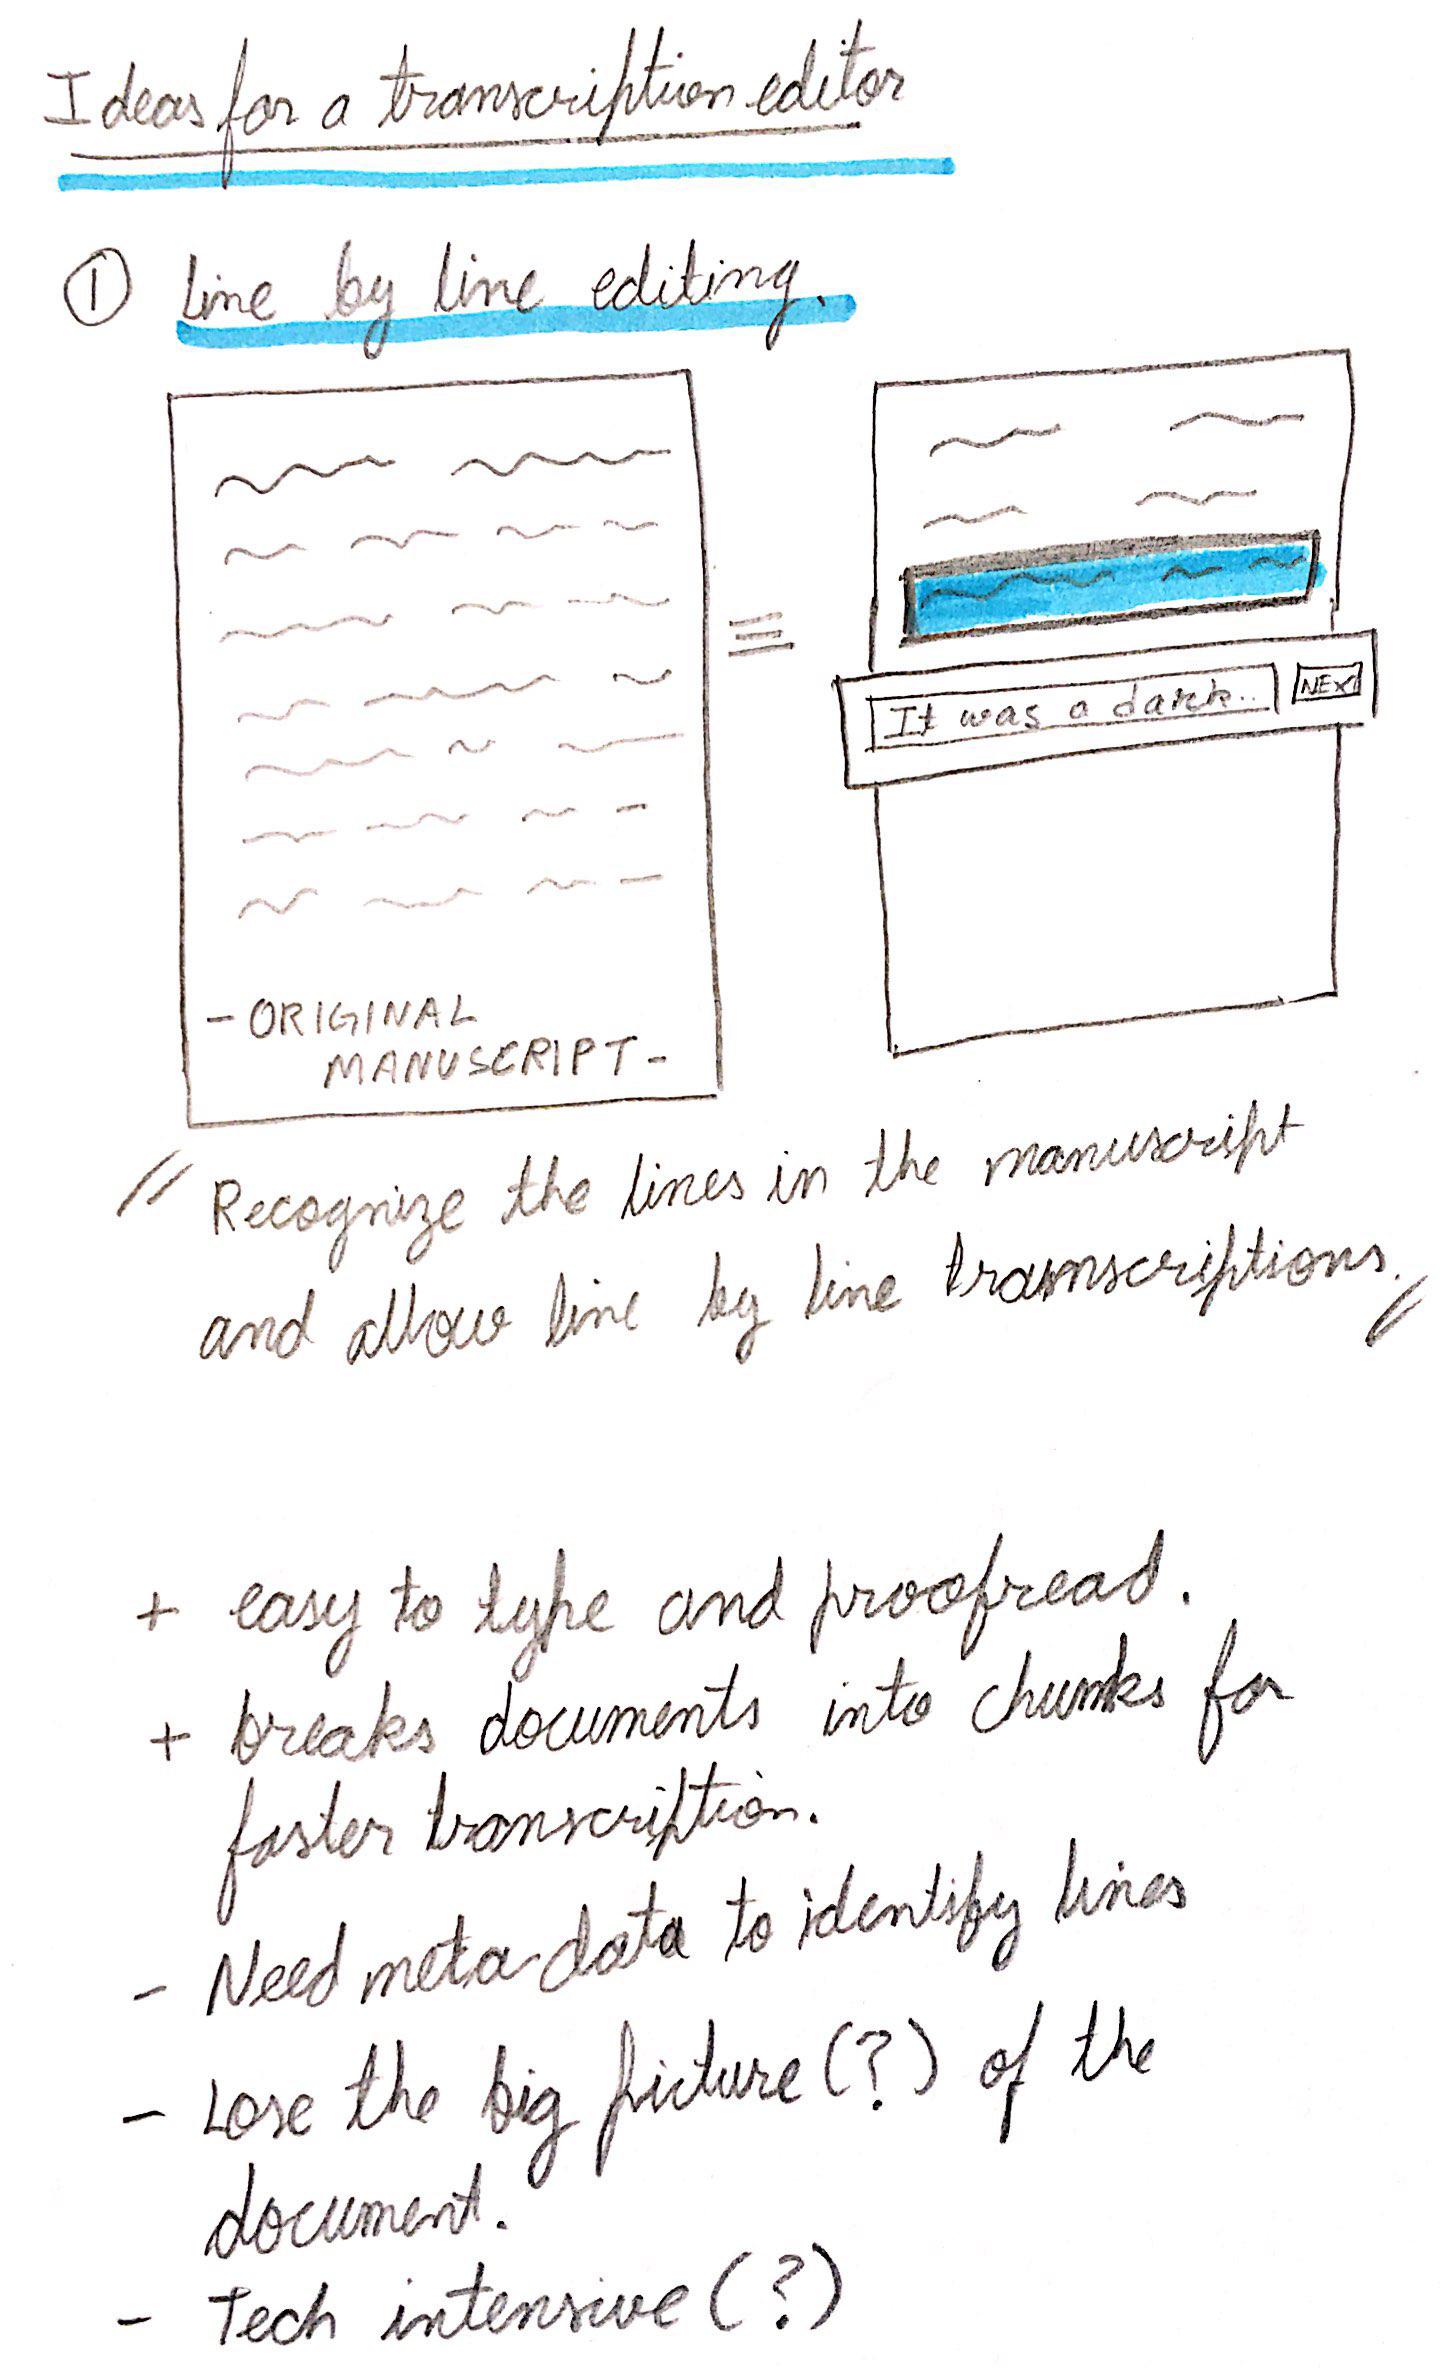 Ideas for a transcription editor
① Line by line editing.
- ORIGINAL
MANUSCRIPT -
It was a dark..
NEXT
" Recognize the lines in the manuscript
and allow line by line transcriptions. "
+ easy to type and proofread.
+ breaks documents into chunks for
faster transcription.
- Need meta-data to identify lines
- Lose the big picture (?) of the
document.
- Tech intensive (?)